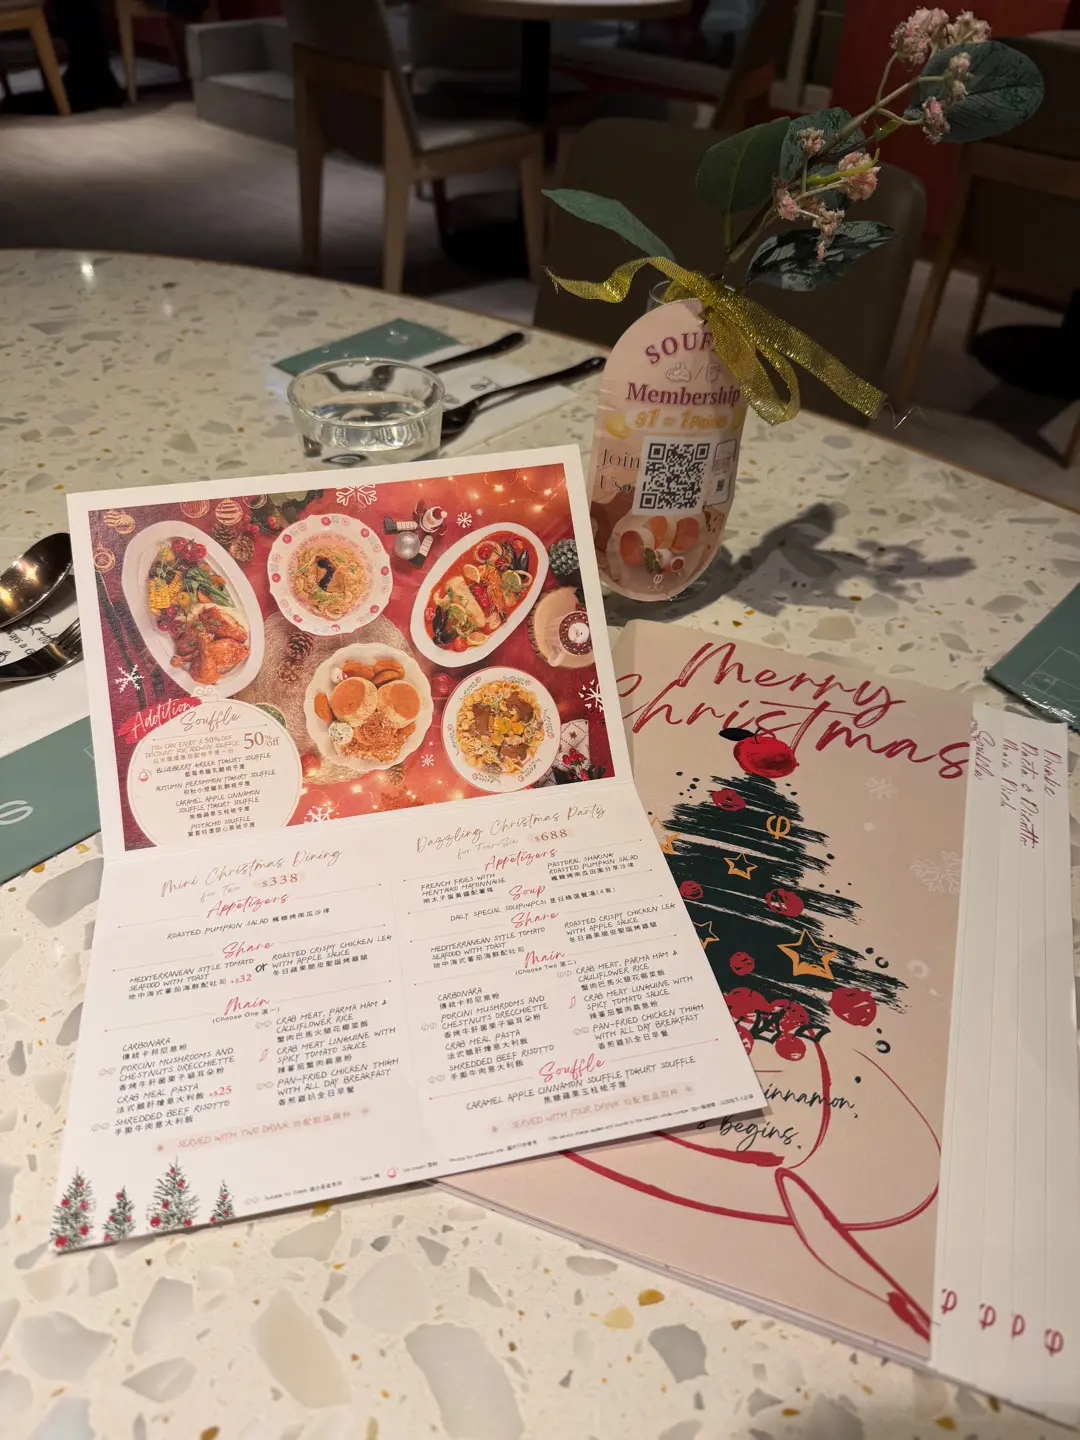 SOUF
Membership
$1 = 1Points
Join
Us
Addition
Souffle
YOU CAN ENJOY A 50% OFF
DISCOUNT FOR ADD-ON SOUFFLE
50%
off
BLUEBERRY GREEK YOGURT SOUFFLE
AUTUMN PERSIMMON YOGURT SOUFFLE
CARAMEL APPLE CINNAMON
SOUFFLE YOGURT SOUFFLE
焦糖蘋果玉桂梳乎厘
PISTACHIO SOUFFLE
Mini Christmas Dining
for Two $338
Appetizers
ROASTED PUMPKIN SALAD 楓糖烤南瓜沙律
Share
MEDITERRANEAN STYLE TOMATO
SEAFOOD WITH TOAST
地中海式蕃茄海鮮配吐司 +$32
or
ROASTED CRISPY CHICKEN LEG
WITH APPLE SAUCE
冬日蘋果脆皮聖誕烤雞腿
Main
(Choose One 選一)
CARBONARA
傳統卡邦尼意粉
PORCINI MUSHROOMS AND
CHESTNUTS ORECCHIETTE
香烤牛肝菌栗子貓耳朵粉
CRAB MEAL PASTA
法式鵝肝燴意大利飯 +$25
SHREDDED BEEF RISOTTO
手撕牛肉意大利飯
CRAB MEAT, PARMA HAM &
CAULIFLOWER RICE
蟹肉巴馬火腿花椰菜飯
CRAB MEAT LINGUINE WITH
SPICY TOMATO SAUCE
辣蕃茄蟹肉扁意粉
PAN-FRIED CHICKEN THIGH
WITH ALL DAY BREAKFAST
香煎雞扒全日早餐
SERVED WITH TWO DRINK 均配飲品兩杯
Dazzling Christmas Party
for Four-Six $688
Appetizers
FRENCH FRIES WITH
MENTAIKO MAYONNAISE
明太子蛋黃醬配薯條
PASTORAL SHARING
ROASTED PUMPKIN SALAD
楓糖烤南瓜田園分享沙律
Soup
DAILY SPECIAL SOUP(4PCS) 是日精選餐湯(4客)
Share
MEDITERRANEAN STYLE TOMATO
SEAFOOD WITH TOAST
地中海式蕃茄海鮮配吐司
ROASTED CRISPY CHICKEN LEG
WITH APPLE SAUCE
冬日蘋果脆皮聖誕烤雞腿
Main
(Choose Two 選二)
CARBONARA
傳統卡邦尼意粉
PORCINI MUSHROOMS AND
CHESTNUTS ORECCHIETTE
香烤牛肝菌栗子貓耳朵粉
CRAB MEAL PASTA
法式鵝肝燴意大利飯
SHREDDED BEEF RISOTTO
手撕牛肉意大利飯
CRAB MEAT, PARMA HAM &
CAULIFLOWER RICE
蟹肉巴馬火腿花椰菜飯
CRAB MEAT LINGUINE WITH
SPICY TOMATO SAUCE
辣蕃茄蟹肉扁意粉
PAN-FRIED CHICKEN THIGH
WITH ALL DAY BREAKFAST
香煎雞扒全日早餐
Souffle
CARAMEL APPLE CINNAMON SOUFFLE YOGURT SOUFFLE
焦糖蘋果玉桂梳乎厘
SERVED WITH FOUR DRINK 均配飲品四杯
Merry
Christmas
innamon,
begins.
Drinks
Pasta & Risotto
Main Dish
Souffle